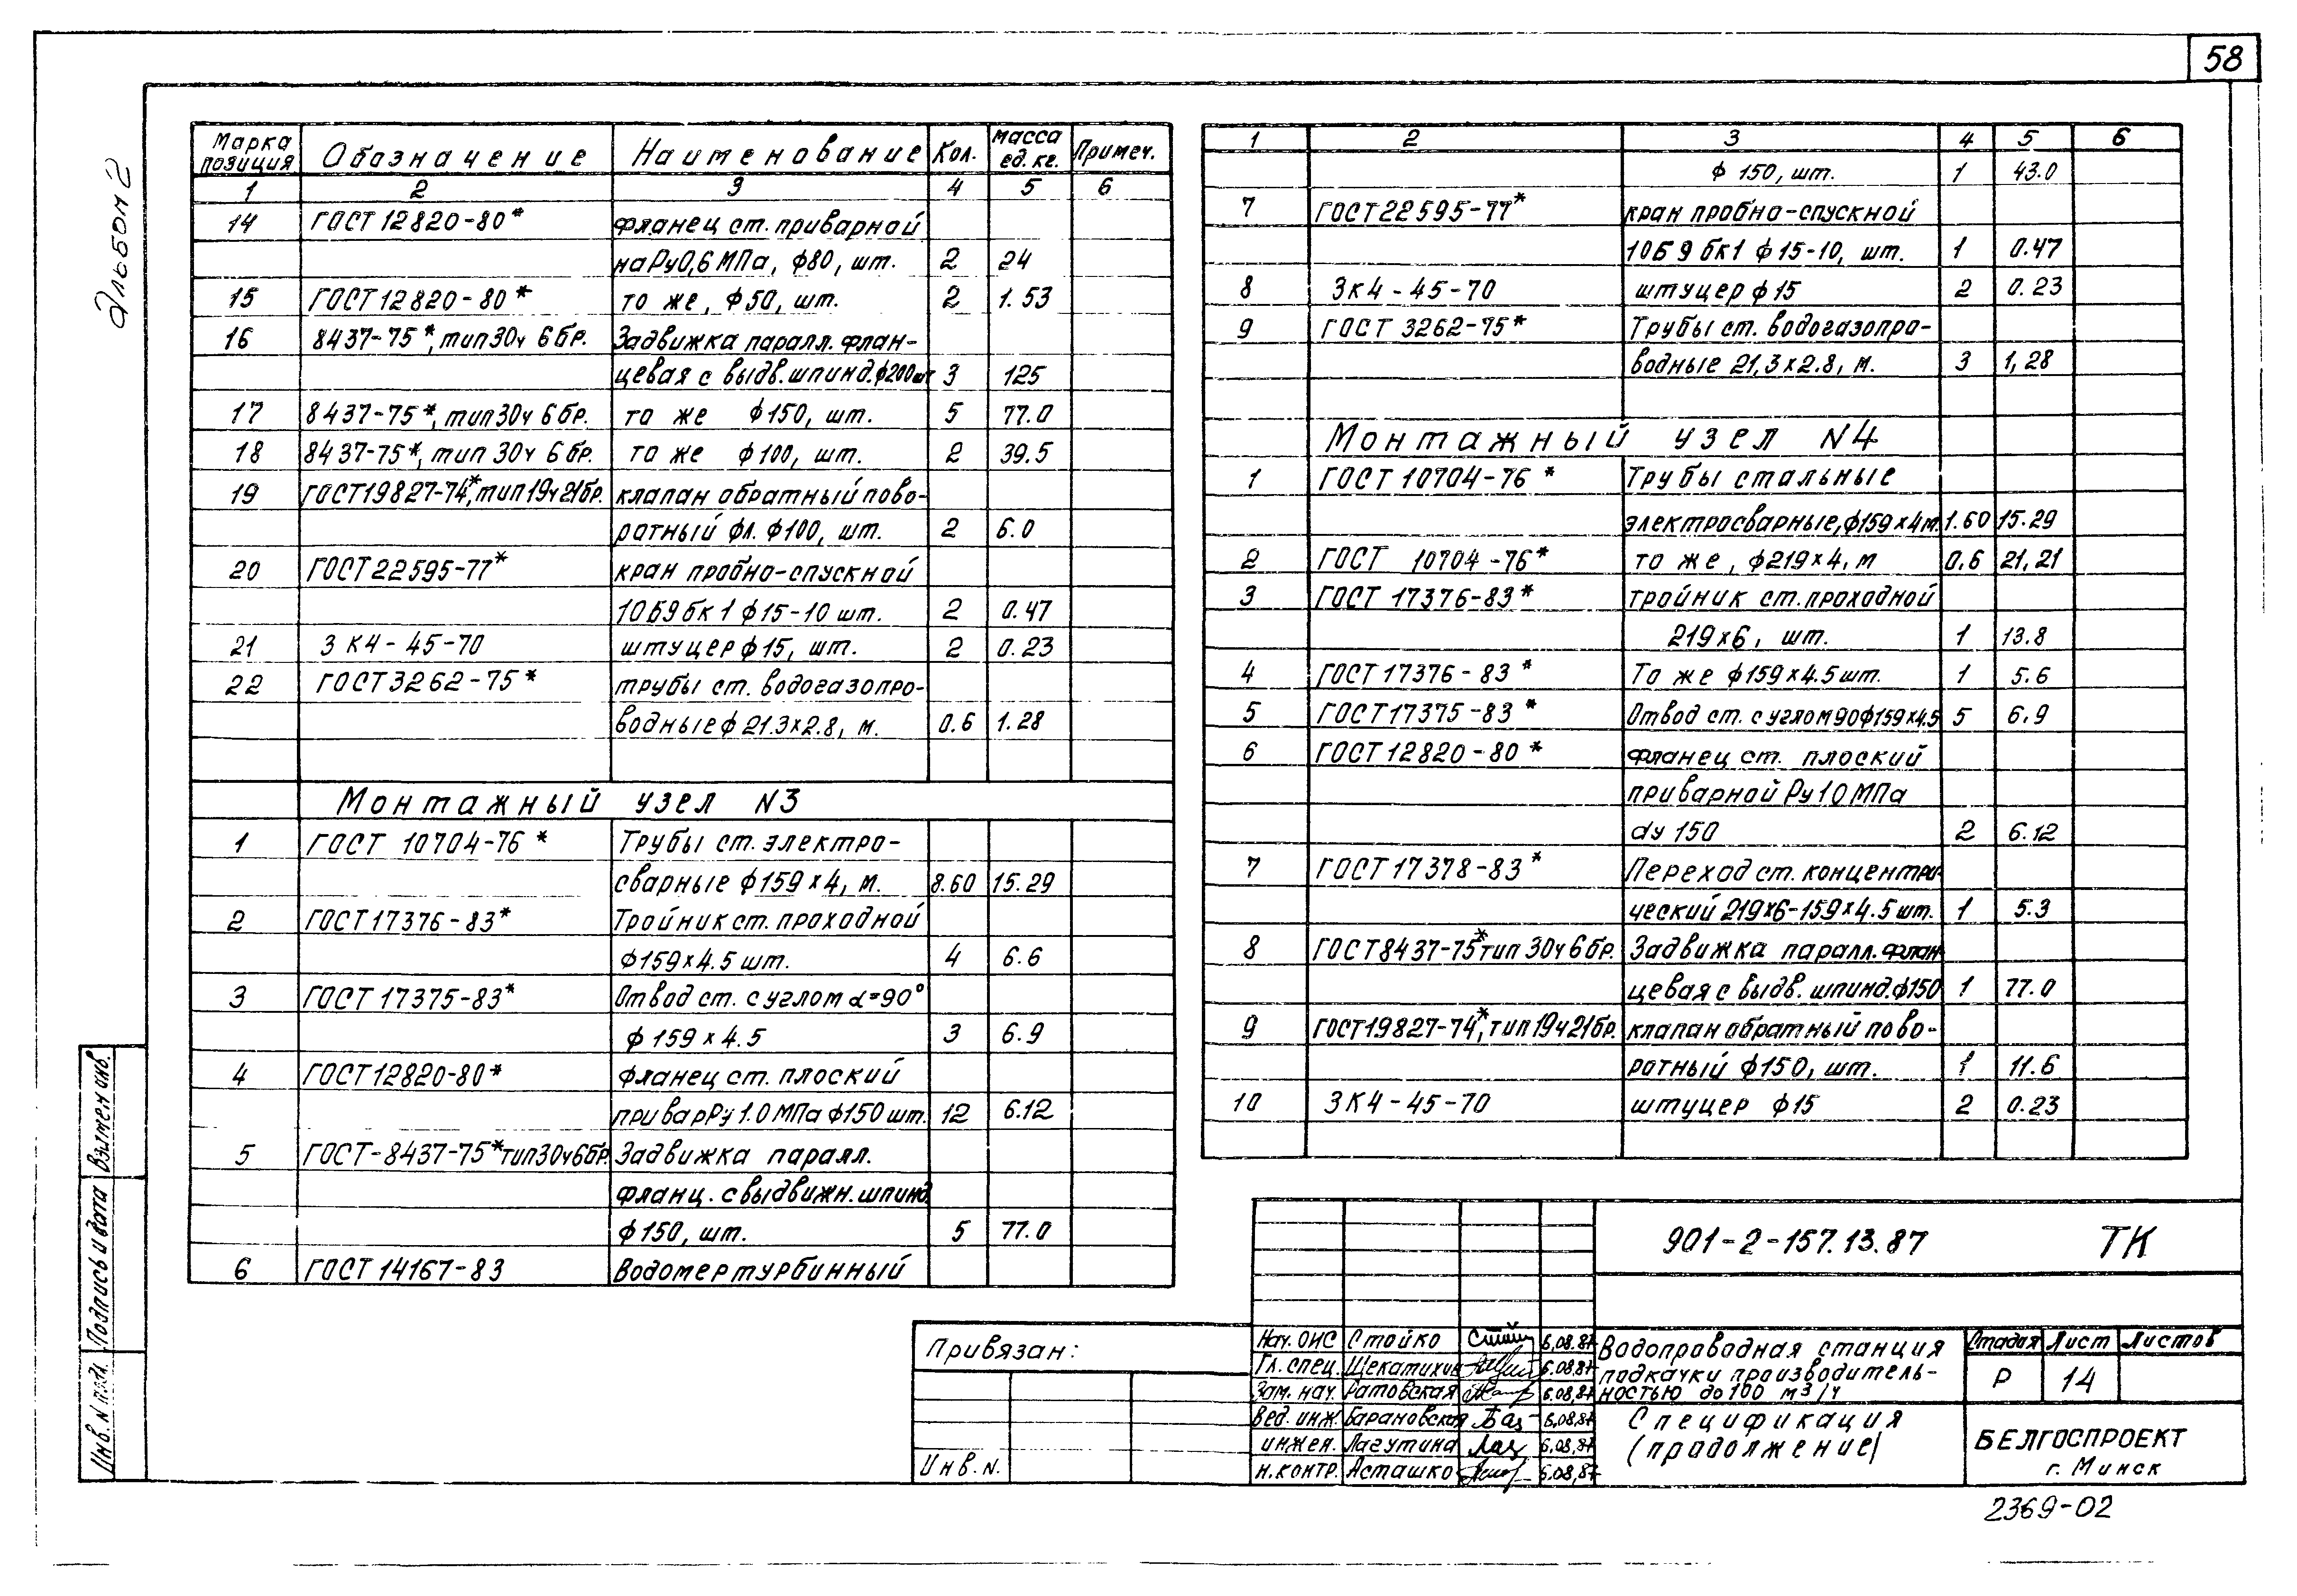 58
Альбом 2
Марка позиция | Обозначение | Наименование | Кол. | Масса ед. кг. | Примеч.
1 | 2 | 3 | 4 | 5 | 6
14 | ГОСТ 12820-80* | фланец ст. приварной
на Ру0,6 МПа, ф80, шт. | 2 | 24
15 | ГОСТ 12820-80* | то же, ф50, шт. | 2 | 1.53
16 | 8437-75*, тип 30ч 6 бр. | Задвижка паралл. флан-
цевая с выдв. шпинд. ф200 шт | 3 | 125
17 | 8437-75*, тип 30ч 6 бр. | то же ф150, шт. | 5 | 77.0
18 | 8437-75*, тип 30ч 6 бр. | то же ф100, шт. | 2 | 39.5
19 | ГОСТ19827-74*, тип 19ч21бр. | клапан обратный пово-
ротный фл. ф100, шт. | 2 | 6.0
20 | ГОСТ22595-77* | кран пробно-спускной
10Б9бк1 ф15-10 шт. | 2 | 0.47
21 | 3К4-45-70 | штуцер ф15, шт. | 2 | 0.23
22 | ГОСТ3262-75* | трубы ст. водогазопро-
водные ф 21.3х2.8, м. | 0.6 | 1.28
Монтажный узел N3
1 | ГОСТ 10704-76* | Трубы ст. электро-
сварные ф159х4, м. | 8.60 | 15.29
2 | ГОСТ17376-83* | Тройник ст. проходной
ф159х4.5 шт. | 4 | 6.6
3 | ГОСТ 17375-83* | Отвод ст. с углом α=90°
ф 159х4.5 | 3 | 6.9
4 | ГОСТ12820-80* | фланец ст. плоский
привар Ру 1.0 МПа ф150 шт. | 12 | 6.12
5 | ГОСТ-8437-75* тип30ч6бр. | Задвижка паралл.
фланц. с выдвижн. шпинд.
ф150, шт. | 5 | 77.0
6 | ГОСТ 14167-83 | Водомер турбинный
1 | 2 | 3 | 4 | 5 | 6
ф 150, шт. | 1 | 43.0
7 | ГОСТ22595-77* | кран пробно-спускной
10Б9бк1 ф15-10, шт. | 1 | 0.47
8 | 3к4-45-70 | штуцер ф15 | 2 | 0.23
9 | ГОСТ 3262-75* | Трубы ст. водогазопро-
водные 21,3х2.8, м. | 3 | 1,28
Монтажный узел N4
1 | ГОСТ 10704-76* | Трубы стальные
электросварные, ф159х4 м. | 1.60 | 15.29
2 | ГОСТ 10704-76* | то же, ф219х4, м | 0.6 | 21,21
3 | ГОСТ 17376-83* | тройник ст. проходной
219х6, шт. | 1 | 13.8
4 | ГОСТ17376-83* | То же ф159х4.5 шт. | 1 | 5.6
5 | ГОСТ17375-83* | Отвод ст. с углом 90 ф159х4.5 | 5 | 6.9
6 | ГОСТ12820-80* | фланец ст. плоский
приварной Ру 10 МПа
dу 150 | 2 | 6.12
7 | ГОСТ17378-83* | Переход ст. концентри-
ческий 219х6-159х4.5 шт. | 1 | 5.3
8 | ГОСТ8437-75* тип 30ч6бр. | Задвижка паралл. флан-
цевая с выдв. шпинд. ф150 | 1 | 77.0
9 | ГОСТ19827-74*, тип 19ч21бр. | клапан обратный пово-
ротный ф150, шт. | 1 | 11.6
10 | 3К4-45-70 | штуцер ф15 | 2 | 0.23
Инв. N подл. | Подпись и дата | Взамен инв.
Привязан:
Инв. N.
901-2-157.13.87 ТК
Нач. ОИС | Стойко | 6.08.87
Гл. спец. | Щекатихин | 6.08.87
Зам. нач. | Ратовская | 6.08.87
Вед. инж. | Барановская | 6.08.87
инжен. | Лагутина | 6.08.87
н.контр. | Асташко | 6.08.87
Водопроводная станция
подкачки производитель-
ностью до 100 м3/ч
Стадия | Лист | Листов
Р | 14
Спецификация
(продолжение)
БЕЛГОСПРОЕКТ
г. Минск
2369-02